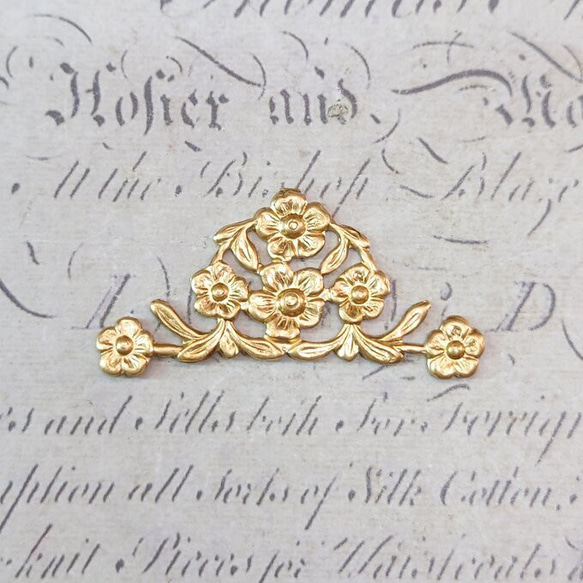 Hosier and
At the Bishop Blaze
D
and Sells both For Foreign
all Sorts of Silk Cotton,
knit Pieces for Waistcoats